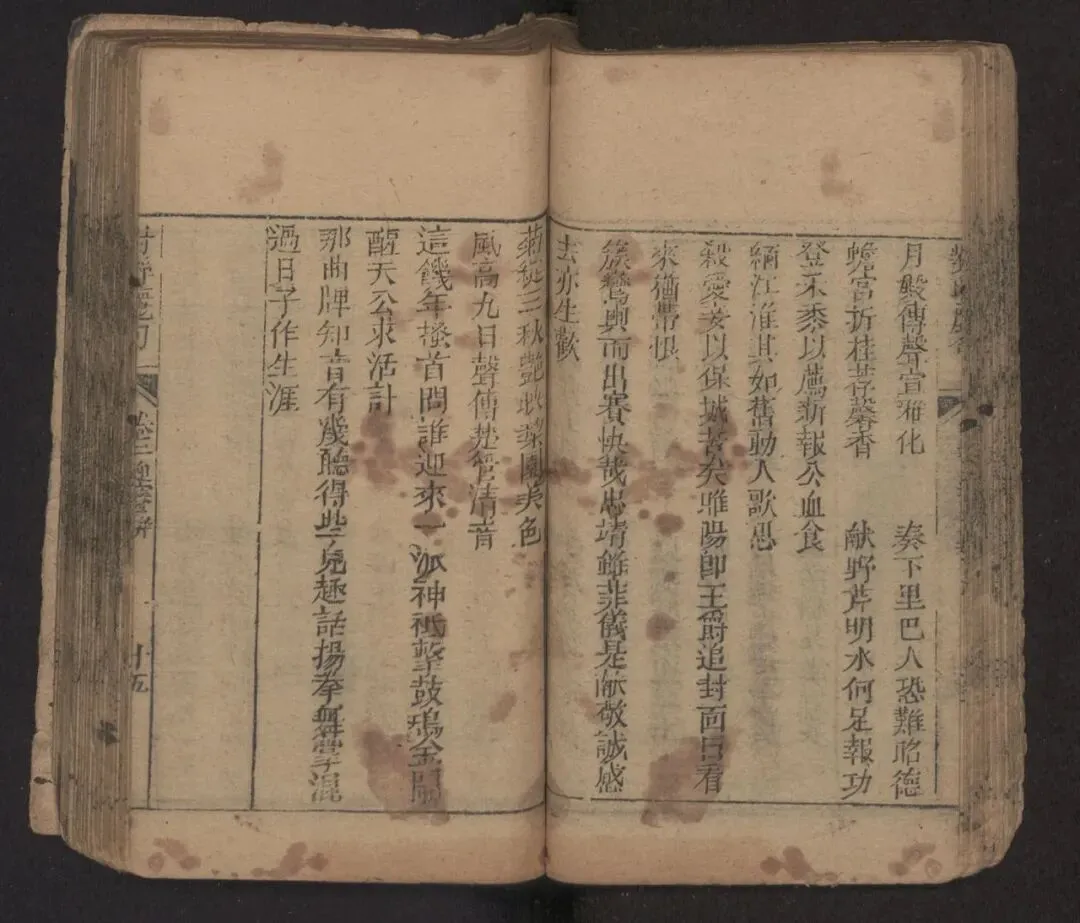 月殿傳聲宣雅化　奏下里巴人恐難昭德
蟾宮折桂荐馨香　献野芹明水何足報功
登禾黍以薦新報公血食
緬江淮其如舊動人歌思
殺愛妾以保城苦矣雎陽即王爵追封面目看
來猶帶恨
鸞輿而出賽快哉忠靖雖菲儀是献敬誠感
去亦生歡
菊綻三秋艷吐梨園美色
風高九日聲傳楚管清音
這饑年搔首問誰迎來一派神祗擊鼓鳴金鬧
醒天公求活計
那曲牌知音有幾聽得些兒趣話揚拳舞掌混
過日子作生涯